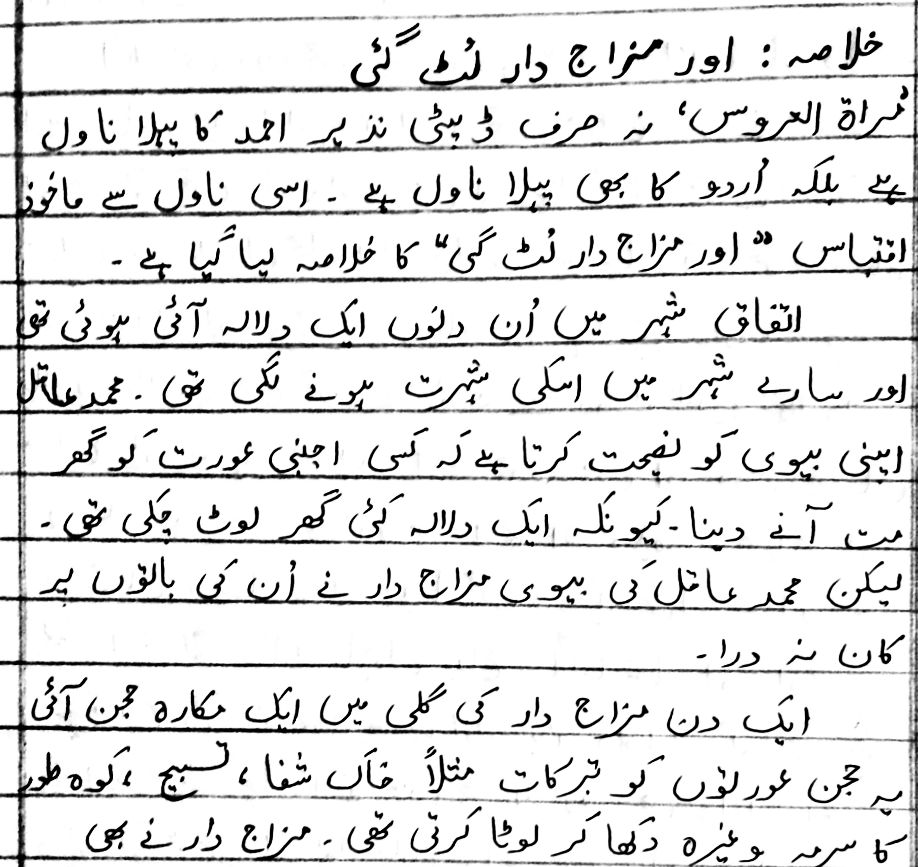 خلاصہ : اور مزاج دار لُٹ گئی
'مراۃ العروس' نہ صرف ڈپٹی نذیر احمد کا پہلا ناول
ہے بلکہ اُردو کا بھی پہلا ناول ہے ۔ اسی ناول سے ماخوذ
اقتباس "اور مزاج دار لُٹ گی" کا خلاصہ لیا گیا ہے ۔
اتفاق شہر میں اُن دنوں ایک دلالہ آئی ہوئی تھی
اور سارے شہر میں اسکی شہرت ہونے لگی تھی ۔ محمد عاقل
اپنی بیوی کو نصیحت کرتا ہے کہ کسی اجنبی عورت کو گھر
مت آنے دینا ۔ کیونکہ ایک دلالہ کئی گھر لوٹ چکی تھی ۔
لیکن محمد عاقل کی بیوی مزاج دار نے اُن کی باتوں پر
کان نہ درا ۔
ایک دن مزاج دار کی گلی میں ایک مکارہ حجن آئی
یہ حجن عورتوں کو تبرکات مثلاً خاک شفا ، تسبیح ، کوہ طور
کا سرمہ وغیرہ دکھا کر لوٹا کرتی تھی ۔ مزاج دار نے بھی